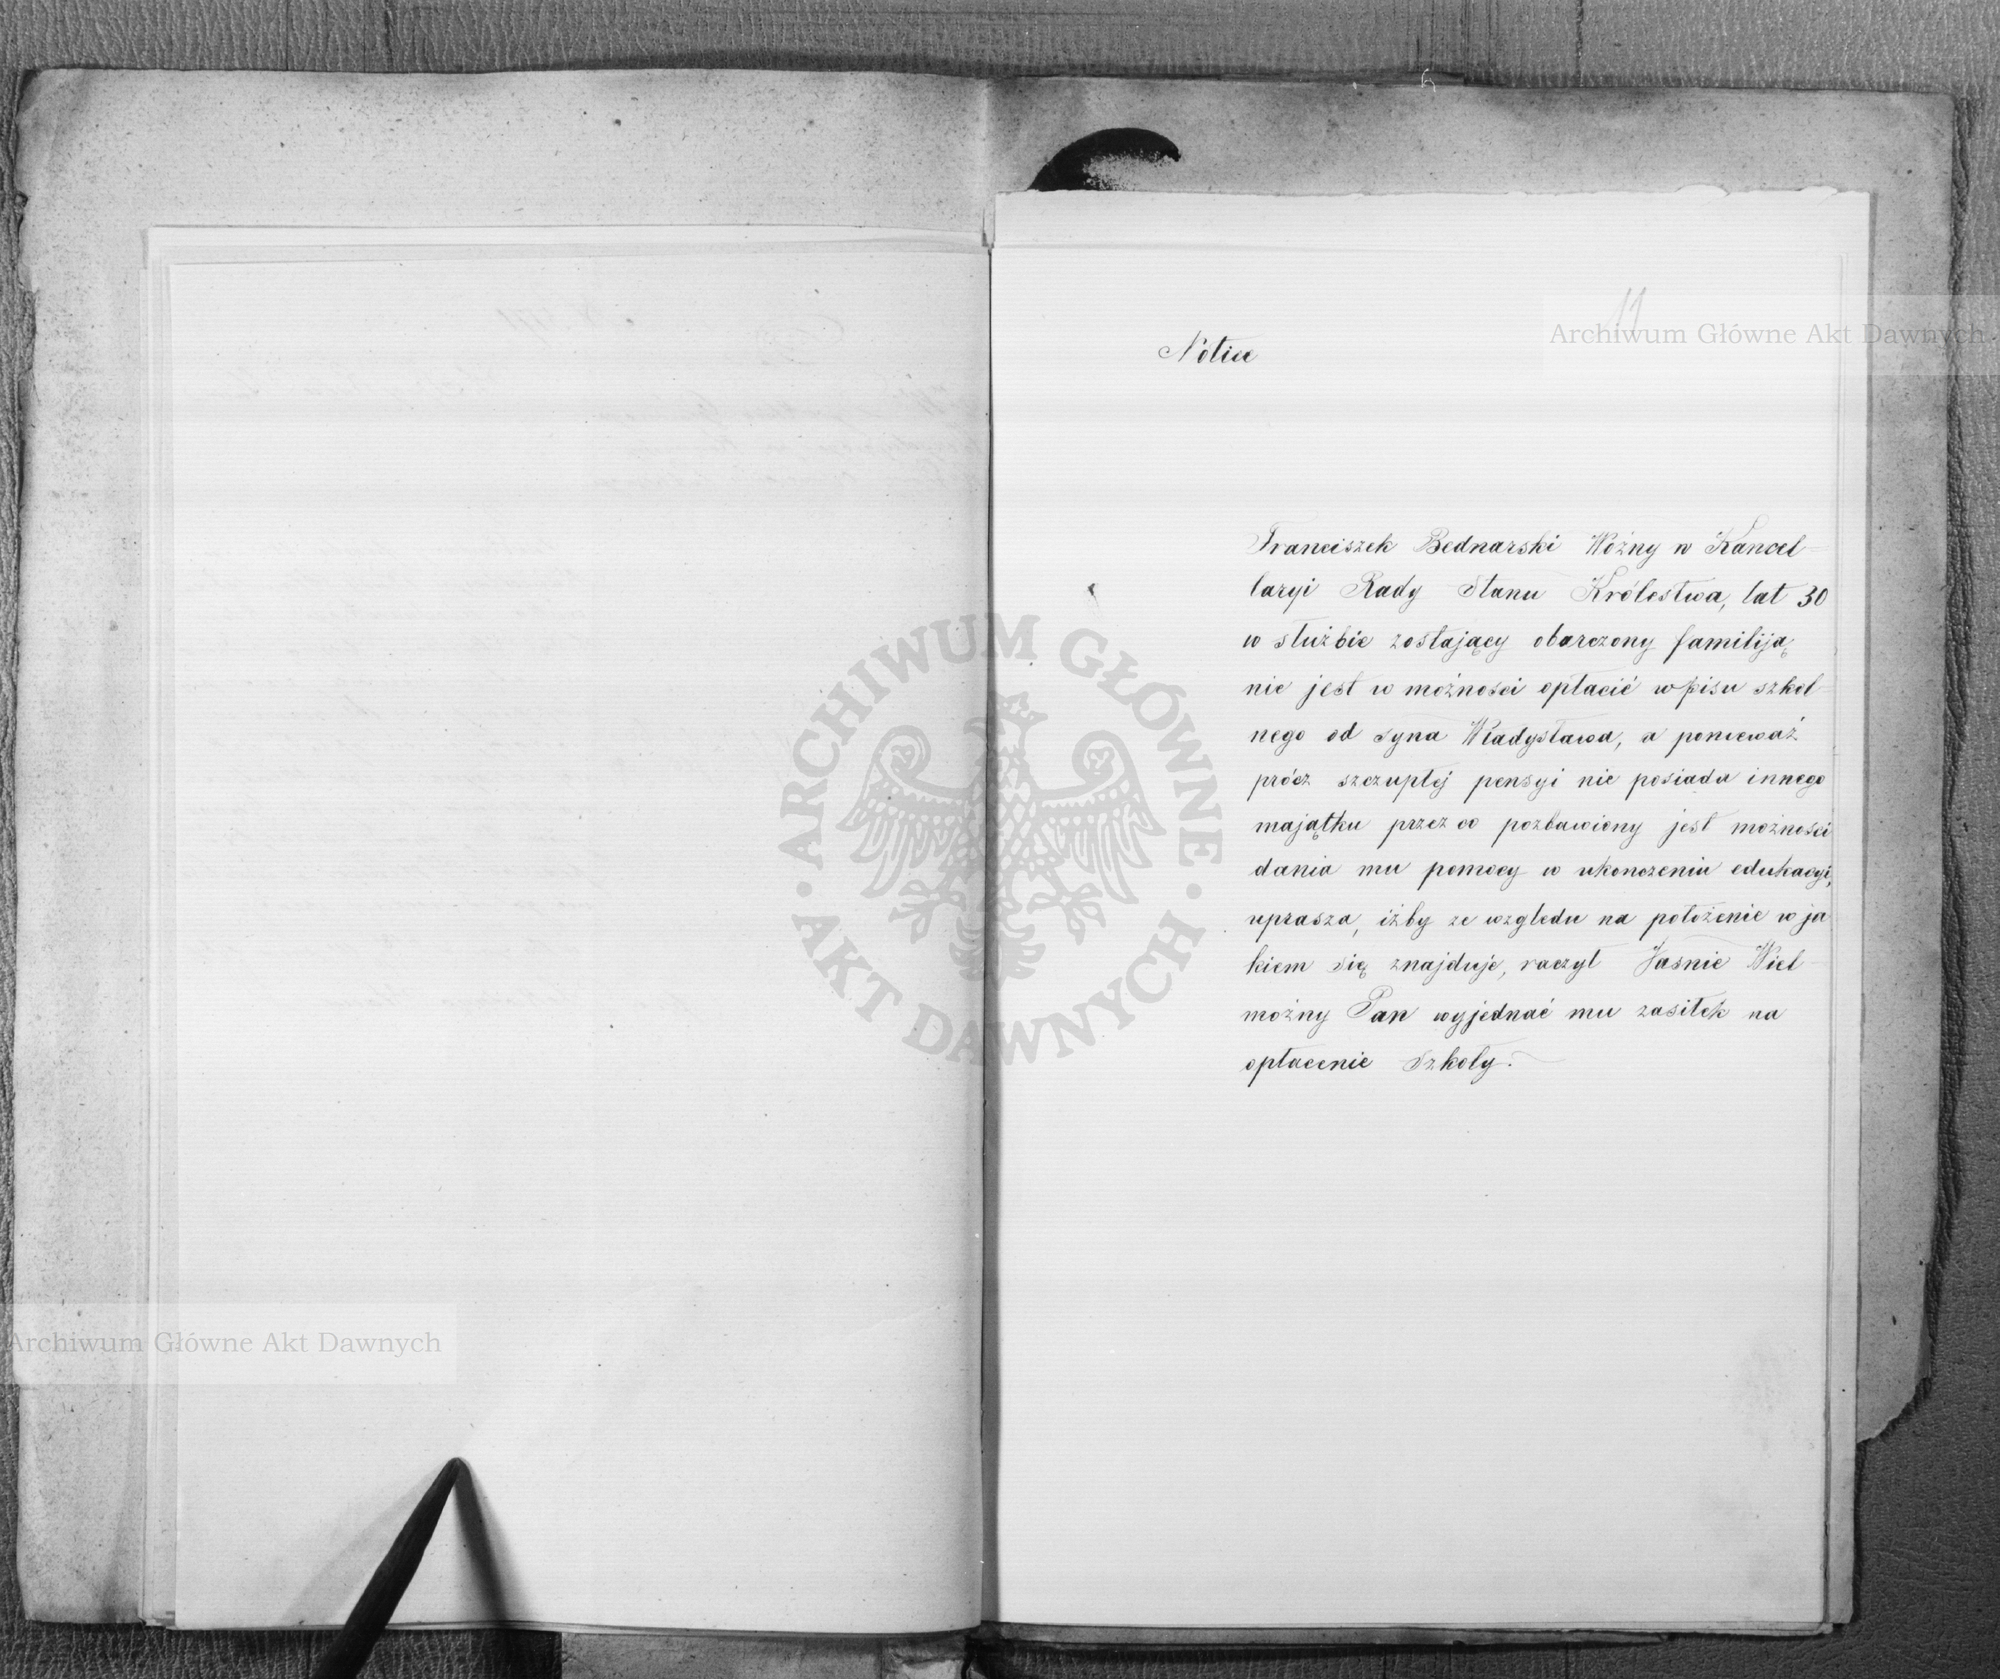 11
Archiwum Główne Akt Dawnych
Notice
Franciszek Bednarski Woźny w Kancel-
laryi Rady Stanu Królestwa, lat 30
w służbie zostający obarczony familiją
nie jest w możności opłacić wpisu szkol-
nego od syna Władysława, a ponieważ
prócz szczupłej pensyi nie posiada innego
majątku przez co pozbawiony jest możności
dania mu pomocy w ukonczeniu edukacyi,
uprasza, iżby ze wzgledu na położenie w ja
kiem się znajduje, raczył Jasnie Wiel-
możny Pan wyjednać mu zasiłek na
opłacenie szkoły.
ARCHIWUM GŁÓWNE · AKT DAWNYCH ·
Archiwum Główne Akt Dawnych